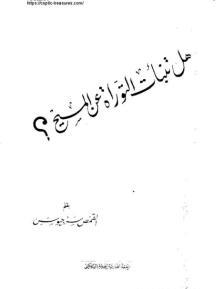 https://coptic-treasures.com
هل تنبأت التوراة عن المسيح
؟
بقلم
القمص سرجيوس